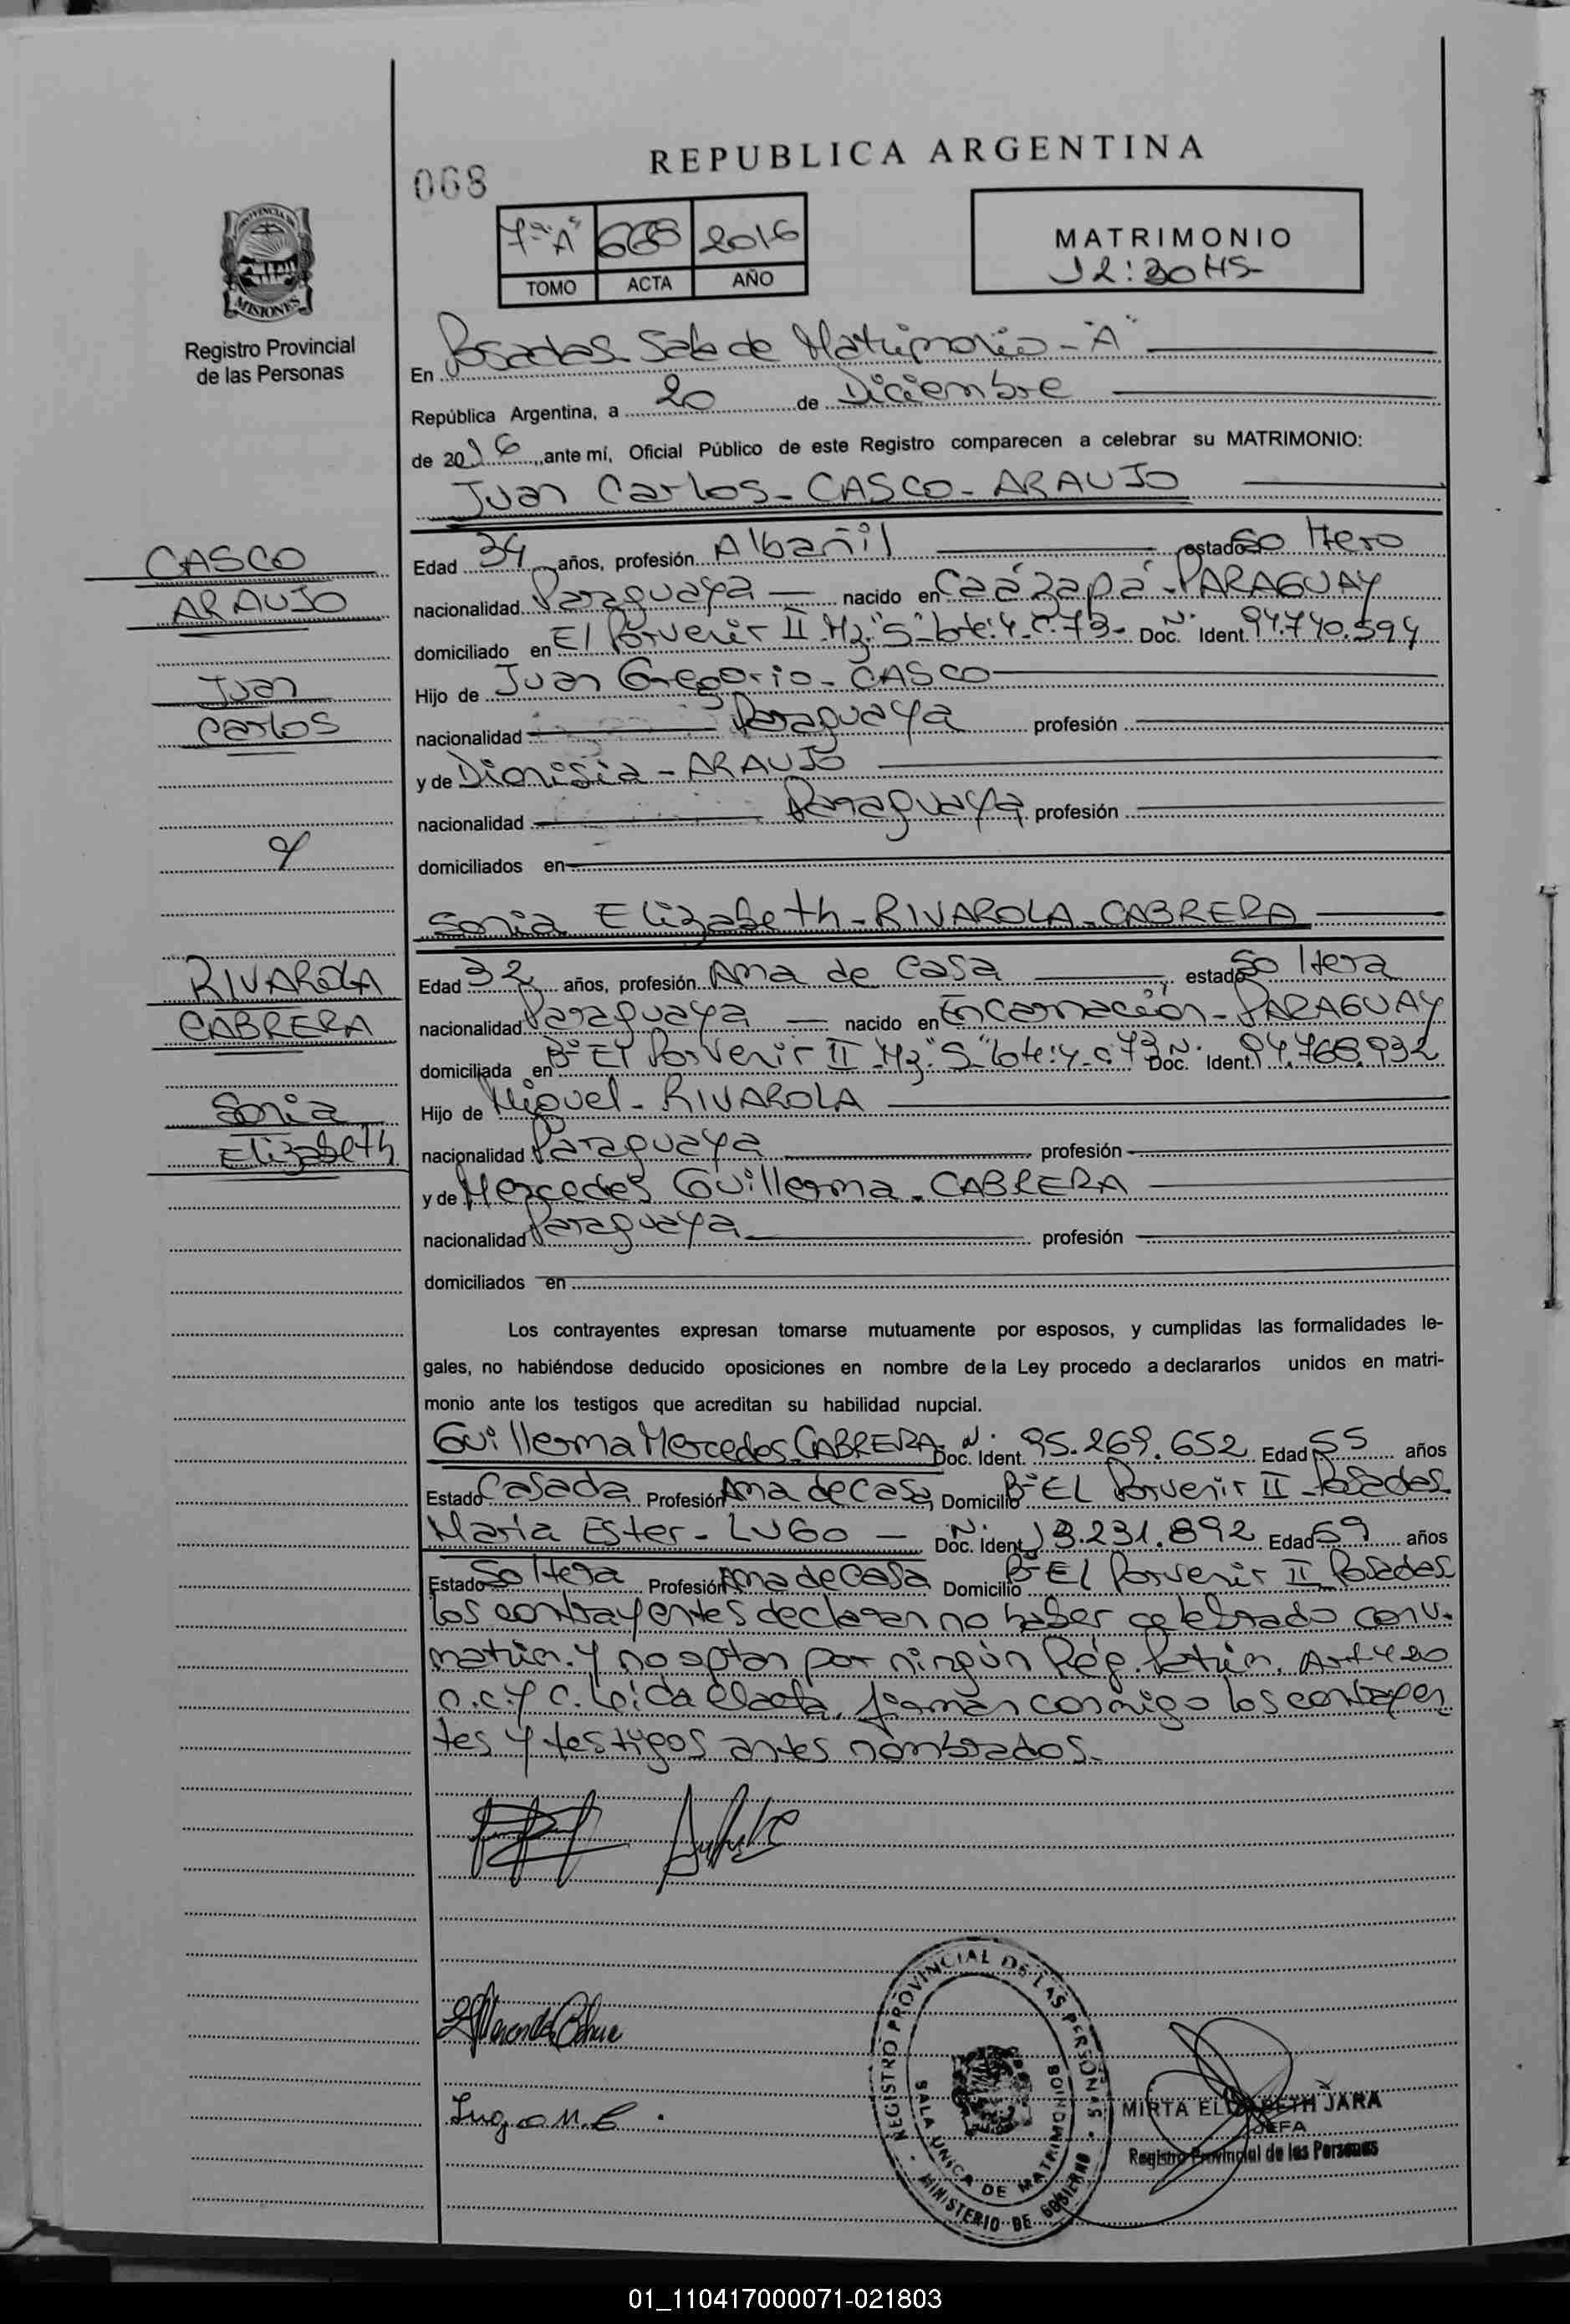 REPUBLICA ARGENTINA
068
7ª "A" 668 2016
TOMO ACTA AÑO
MATRIMONIO
12:30 HS-
PROVINCIA DE
MISIONES
Registro Provincial
de las Personas
En Posadas Sala de Matrimonio - "A"
República Argentina, a 20 de Diciembre
de 2016, ante mí, Oficial Público de este Registro comparecen a celebrar su MATRIMONIO:
Juan Carlos - CASCO - ARAUJO
CASCO
ARAUJO
Juan
Carlos
Edad 34 años, profesión Albañil estado Soltero
nacionalidad Paraguaya nacido en Caázapá - PARAGUAY
domiciliado en El Porvenir II Mz. "S" Lote: 4 - C. 73 - Doc. N° Ident. 94.740.594
Hijo de Juan Gregorio - CASCO
nacionalidad Paraguaya profesión
y de Dionisia - ARAUJO
nacionalidad Paraguaya profesión
y
domiciliados en
Sonia Elizabeth - RIVAROLA - CABRERA
RIVAROLA
CABRERA
Sonia
Elizabeth
Edad 32 años, profesión Ama de Casa estado Soltera
nacionalidad Paraguaya nacido en Encarnación - PARAGUAY
domiciliada en B° El Porvenir II Mz. "S" Lote: 4 - c 73 Doc. N° Ident. 94.768.932
Hijo de Miguel - RIVAROLA
nacionalidad Paraguaya profesión
y de Mercedes Guillerma - CABRERA
nacionalidad Paraguaya profesión
domiciliados en
Los contrayentes expresan tomarse mutuamente por esposos, y cumplidas las formalidades le-
gales, no habiéndose deducido oposiciones en nombre de la Ley procedo a declararlos unidos en matri-
monio ante los testigos que acreditan su habilidad nupcial.
Guillerma Mercedes CABRERA Doc. N° Ident. 95.269.652 Edad 55 años
Estado Casada Profesión Ama de Casa, Domicilio B° El Porvenir II - Posadas
María Ester - LUGO - Doc. N° Ident. 13.231.892 Edad 59 años
Estado Soltera Profesión Ama de Casa Domicilio B° El Porvenir II Posadas
Los contrayentes declaran no haber celebrado conv.
matrim. y no optan por ningún Rég. Patrim. Art 420
C.C.y C. Leída el acta, firman conmigo los contrayen
tes y testigos antes nombrados.
Lugo M. E.
REGISTRO PROVINCIAL DE LAS PERSONAS
SALA UNICA DE MATRIMONIOS
MINISTERIO DE GOBIERNO
MIRTA ELIZABETH JARA
JEFA
Registro Provincial de las Personas
01_110417000071-021803